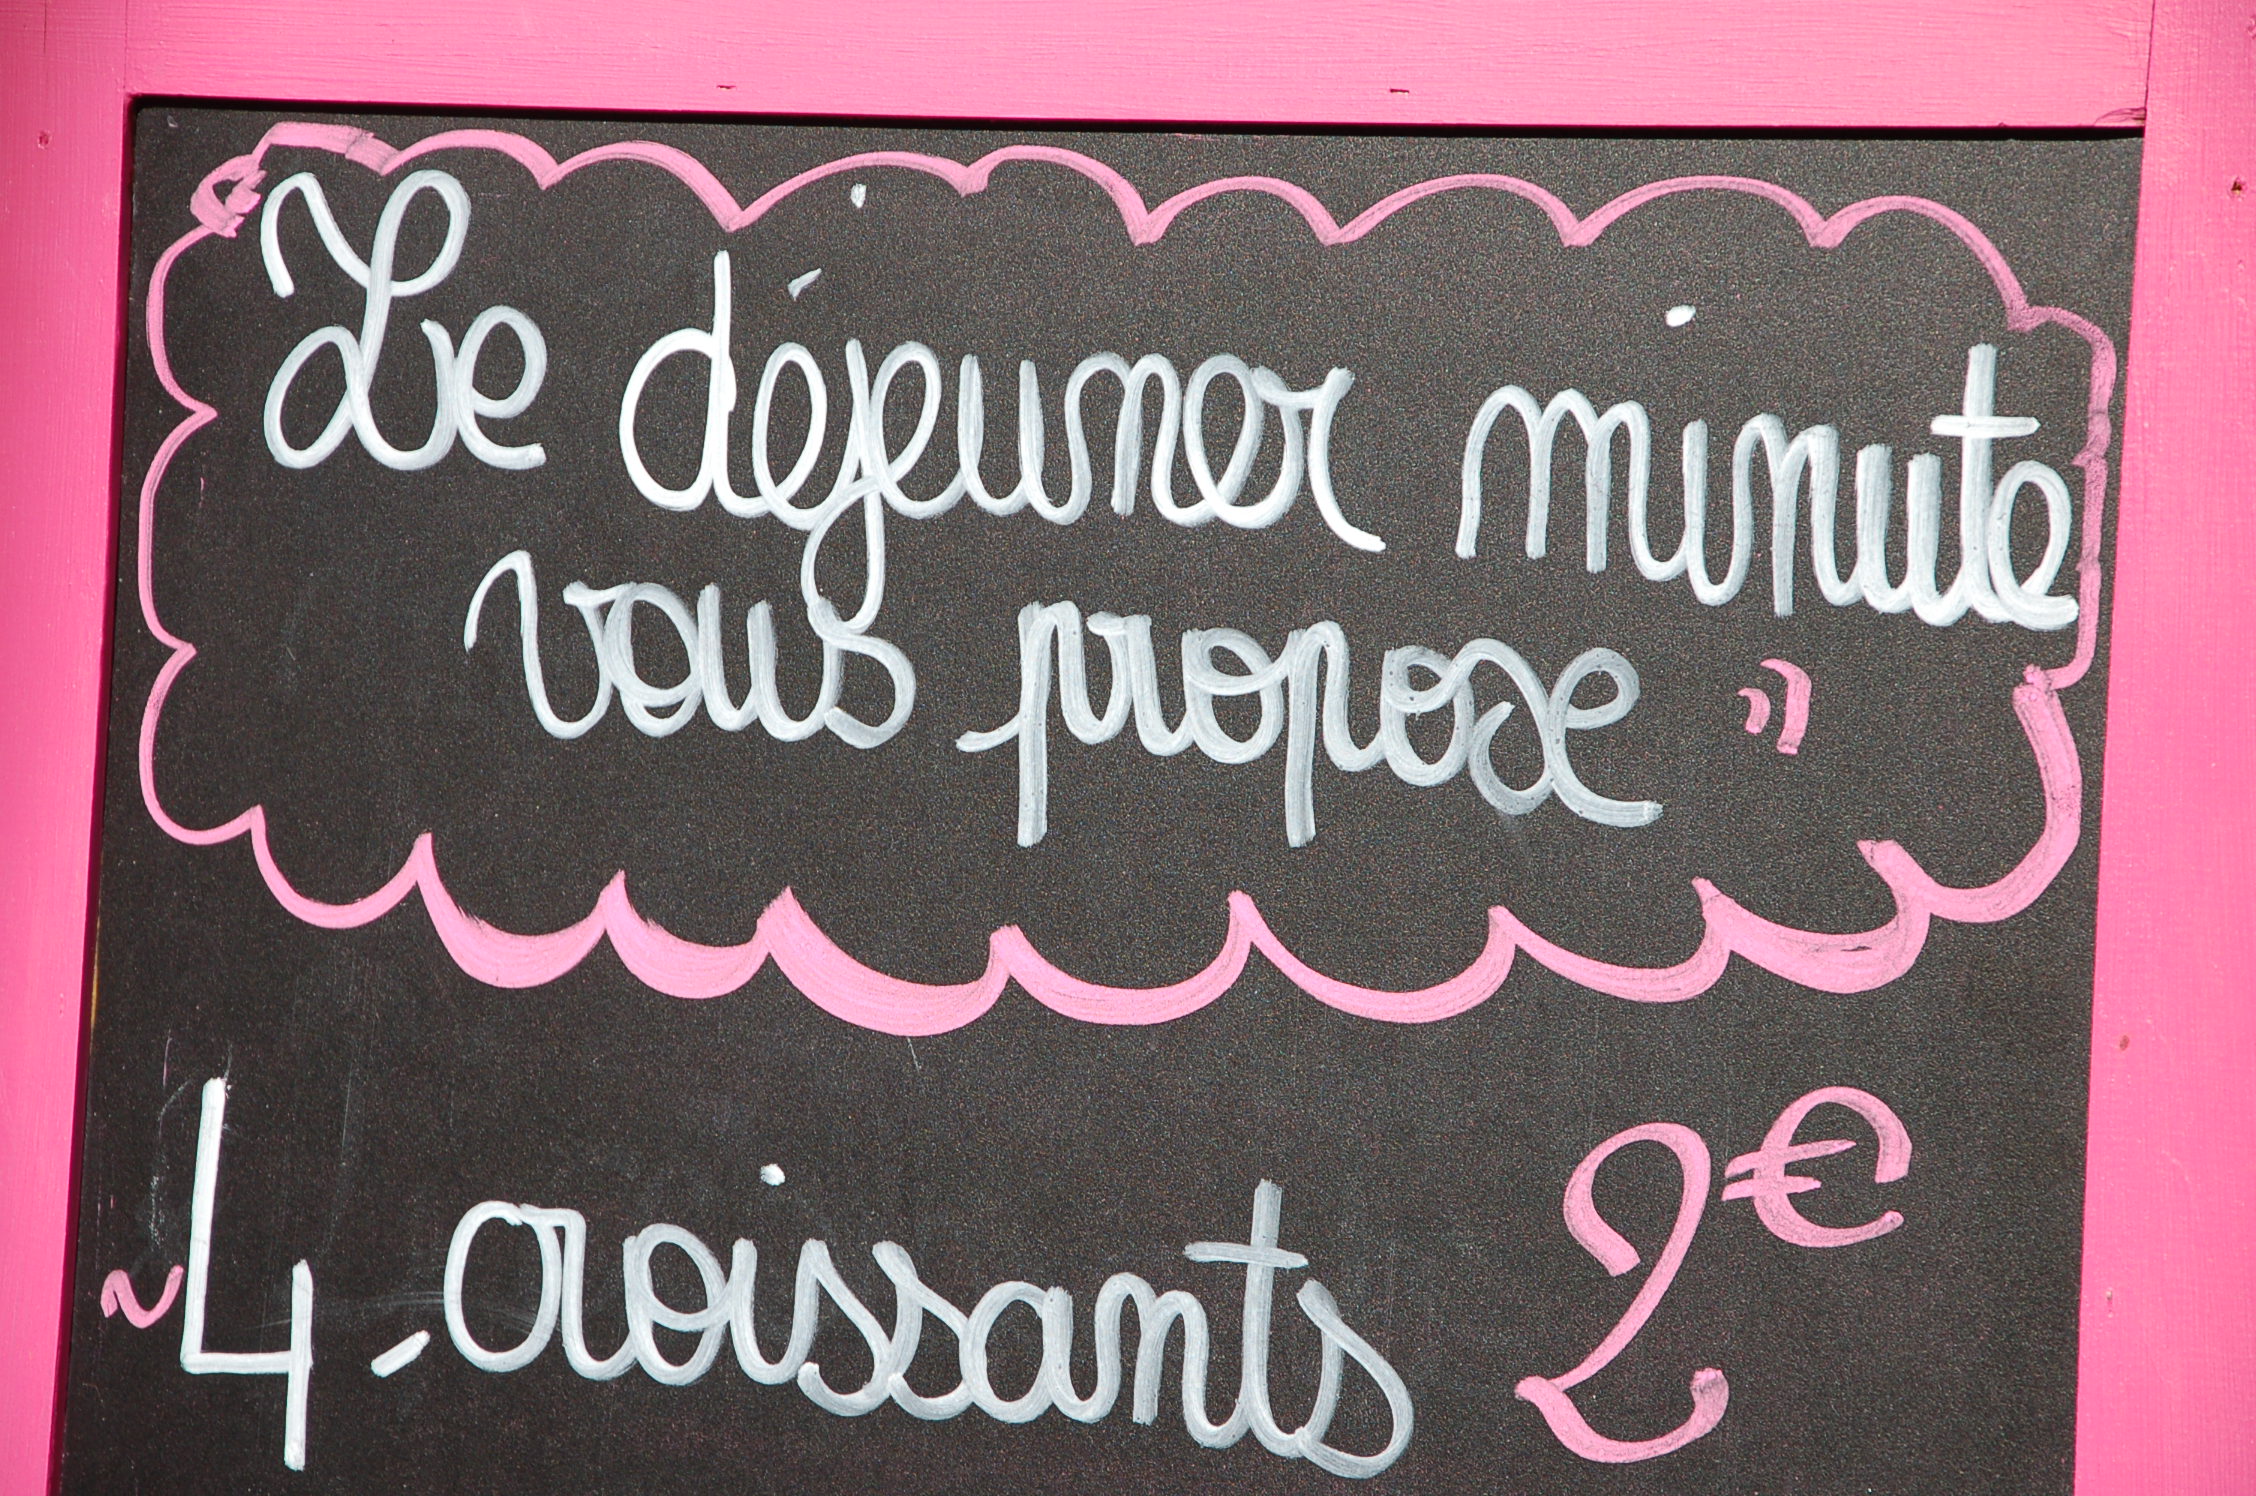 Le déjeuner minute
vous propose "
~ 4 - croissants 2€